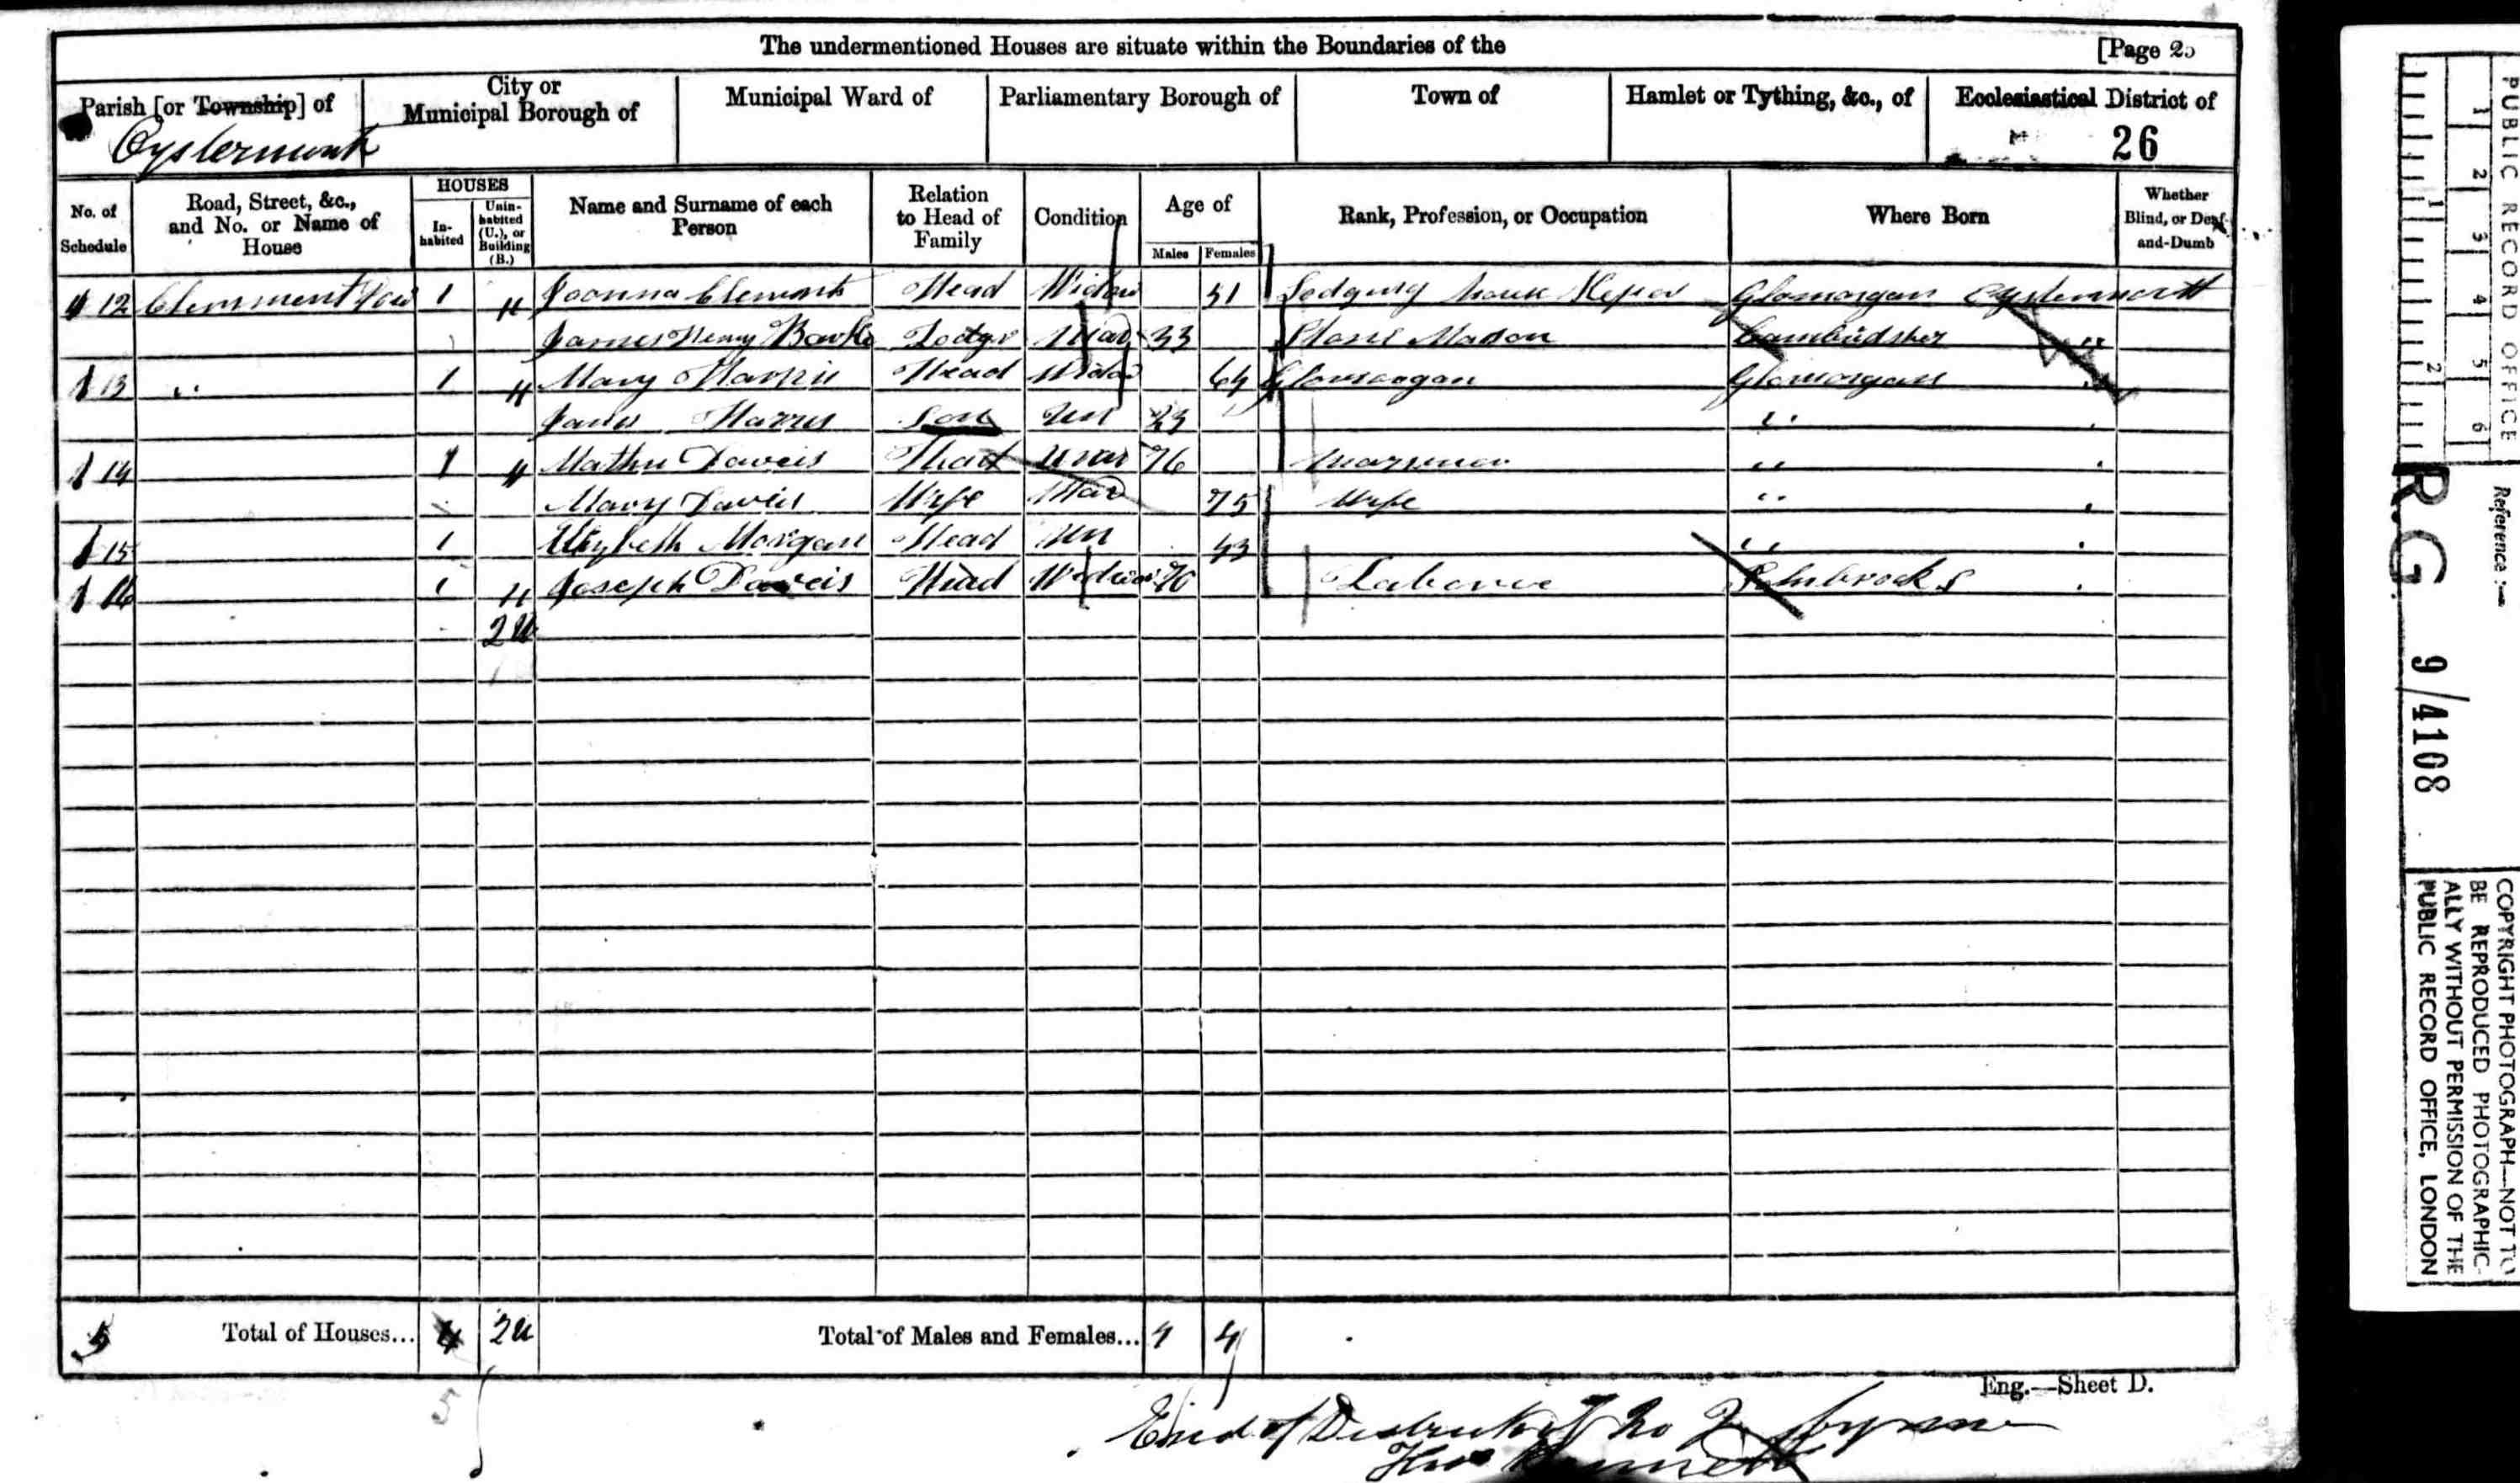 The undermentioned Houses are situate within the Boundaries of the [Page 25
Parish [or Township] of
City or Municipal Borough of
Municipal Ward of
Parliamentary Borough of
Town of
Hamlet or Tything, &c., of
Ecclesiastical District of
Oystermouth
26
No. of Schedule
Road, Street, &c., and No. or Name of House
HOUSES
In-habited
Unin-habited (U.), or Building (B.)
Name and Surname of each Person
Relation to Head of Family
Condition
Age of
Males
Females
Rank, Profession, or Occupation
Where Born
Whether Blind, or Deaf-and-Dumb
112 Clemment Row 1 Joanna Clement Head Widow 51 Lodging House Keper Glamorgan Oystermouth
James Henry Lodger Mar 33 Mason "
113 " 1 Mary Harris Head Widow 64 Glamorgan Glamorgan
James Harris Son Un 23 "
114 1 Mathu Daveis Head Mar 76 Marriner "
Mary Davies Wife Mar 75 Wife "
115 1 Morgan Head Un 43 "
116 1 Joseph Daveis Head 70 Pembrock
2u
5 Total of Houses... 4 2u Total of Males and Females... 4 4
Eng.—Sheet D.
5
End of No 2
Thos
PUBLIC RECORD OFFICE
1 2 3 4 5 6
1 2
Reference :—
R.G. 9/4108
COPYRIGHT PHOTOGRAPH—NOT TO
BE REPRODUCED PHOTOGRAPHIC-
ALLY WITHOUT PERMISSION OF THE
PUBLIC RECORD OFFICE, LONDON